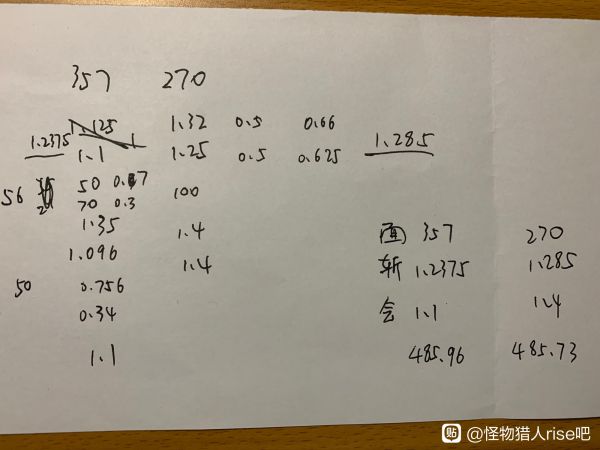 357 270
1.125 1 1.32 0.5 0.66
1.2375 1.1 1.25 0.5 0.625 1.285
56 50 0.7 100
70 0.3
1.35 1.4
1.096 1.4
50 0.756
0.34
1.1
面 357 270
斩 1.2375 1.285
会 1.1 1.4
485.96 485.73
贴 @怪物猎人rise吧